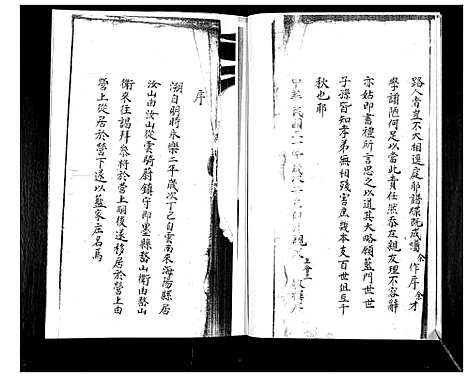 路人者豈不大相逕庭耶譜牒既成囑余作序余才
學謭陋何足以當此責任然忝在親友理不容辭
亦姑即書禮所言思之以道其大略願藍門世世
子孫皆知孝弟無相殘害庶幾本支百世俎豆千
秋也耶
序
溯自明時永樂二年歲次丁巳自雲南來海陽縣居
汝山由汝山從雲騎尉鎮守即墨縣鰲山衛由鰲山
衛來往謁拜祭將於營上嗣後遂移居於營上由
營上從居於營下遂以藍家庄名焉